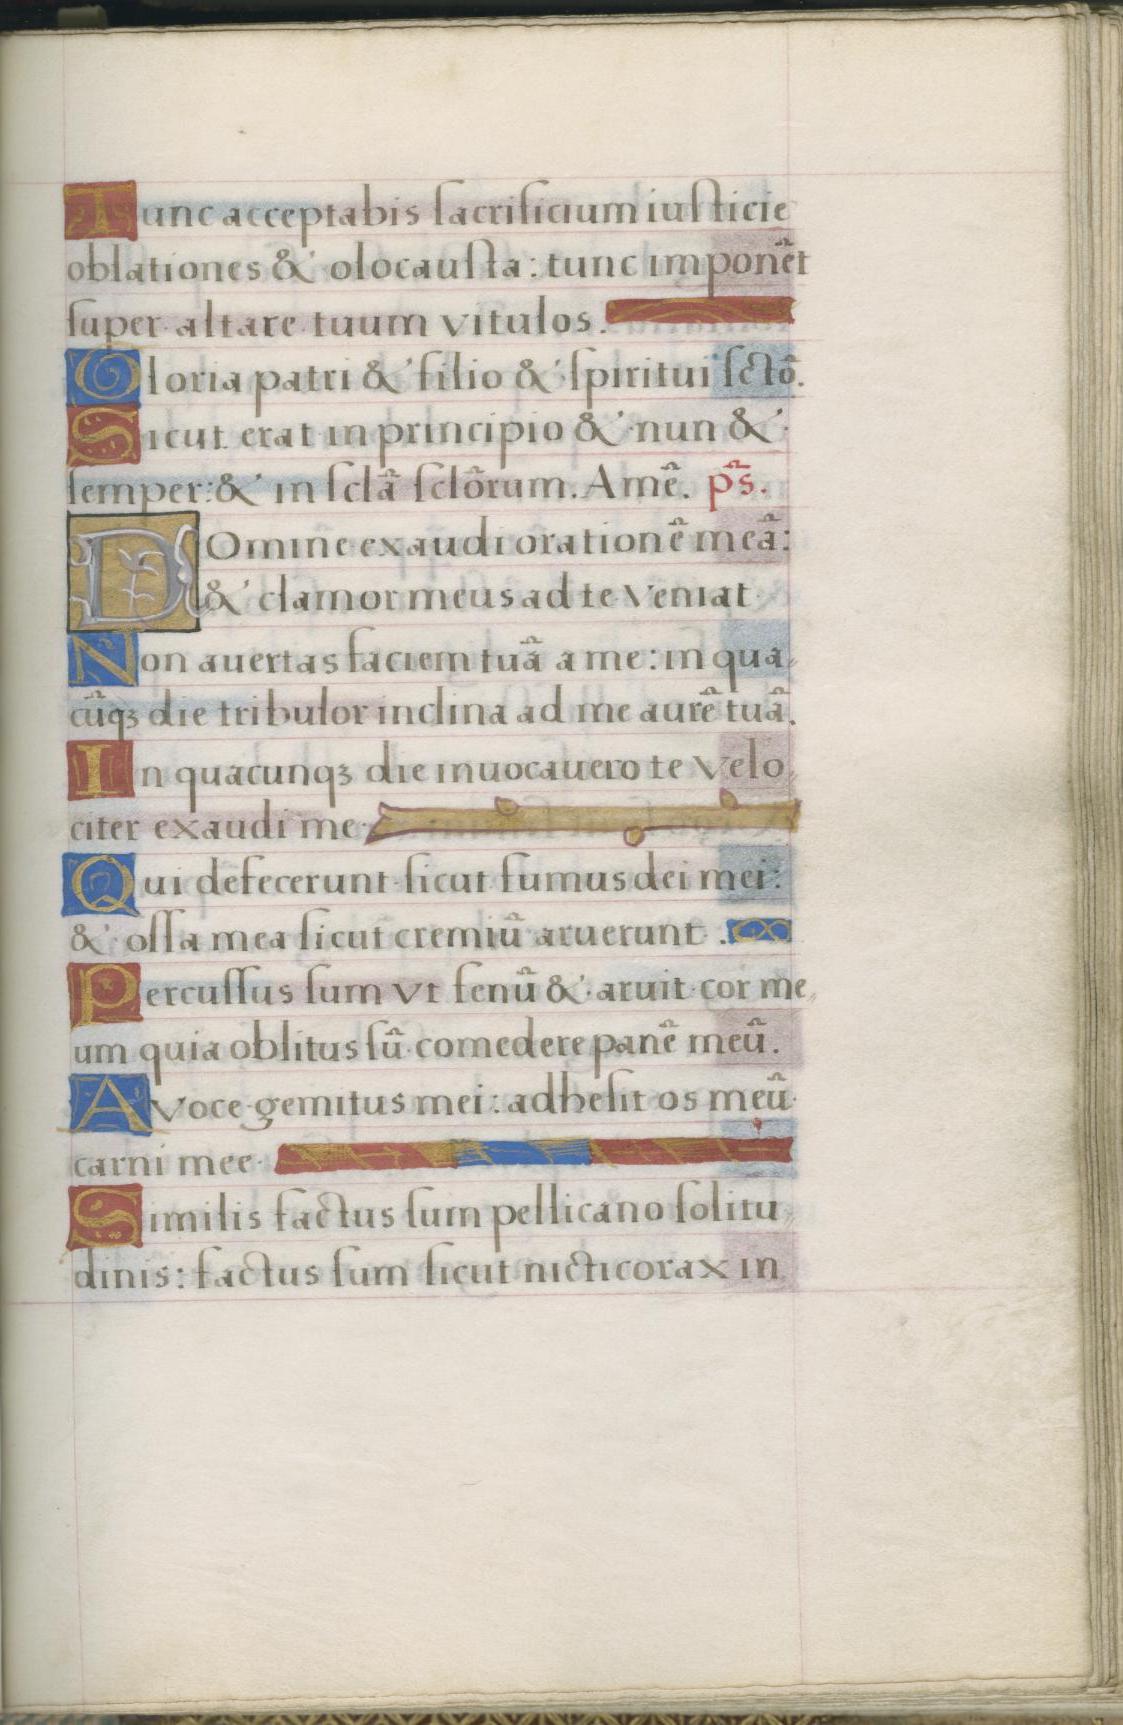 Tunc acceptabis ſacrificium iuſticie
oblationes & olocauſta: tunc imponẽt
ſuper altare tuum vitulos.
Gloria patri & filio & ſpiritui ſctõ.
Sicut erat in principio & nun &
ſemper: & in ſclã ſclõrum. Amẽ. ps̃.
DOmine exaudi orationẽ meã:
& clamor meus ad te veniat
Non auertas faciem tuã a me: in qua,,
cũqꝫ die tribulor inclina ad me aurẽ tuã.
In quacunqꝫ die inuocauero te velo,,
citer exaudi me.
Qui defecerunt ſicut fumus dei mei:
& oſſa mea ſicut cremiũ aruerunt.
Percuſſus ſum vt fenũ & aruit cor me,,
um quia oblitus ſũ comedere panẽ meũ.
A voce gemitus mei: adheſit os meũ
carni mee.
Similis factus ſum pellicano ſolitu,,
dinis: factus ſum ſicut nicticorax in